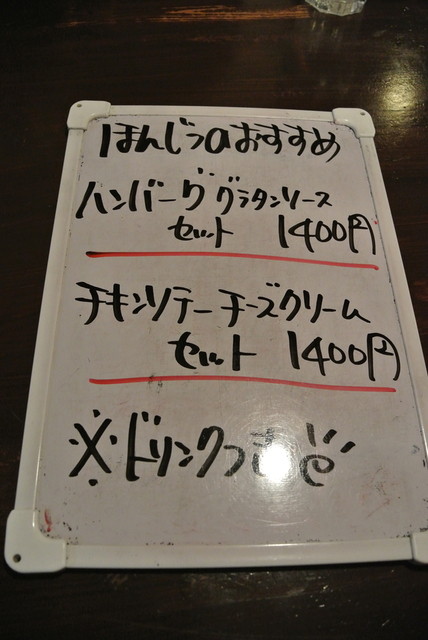 ほんじつのおすすめ
ハンバーグ グラタンソース
セット 1400円
チキンソテー チーズクリーム
セット 1400円
※ドリンクつき